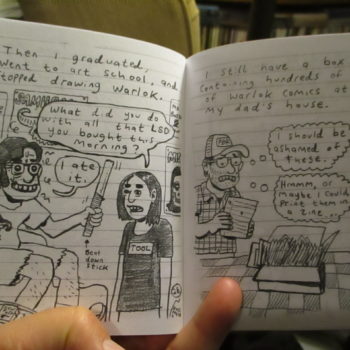 Then I graduated,
went to art school, and
stopped drawing Warlok.
What did you do
with all that LSD
you bought this
morning?
I ate
it.
Beat
down
stick
TOOL
I still have a box
containing hundreds of
of Warlok comics at
my dad's house.
I should be
ashamed of
these.
Hmmm, or
maybe I could
print them in
a zine...